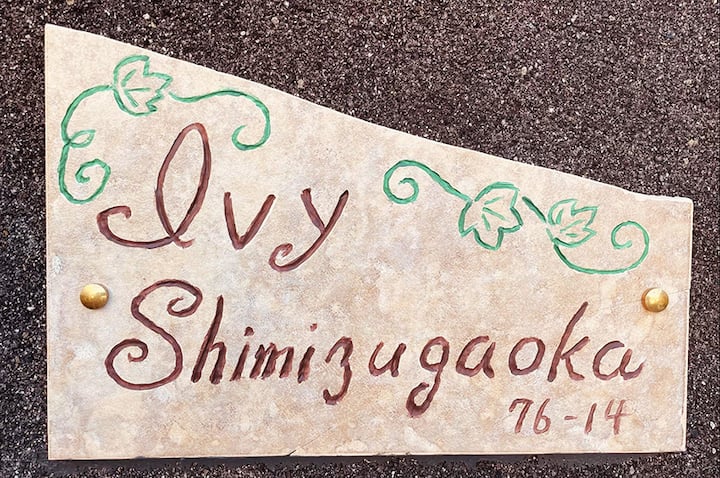 Ivy
Shimizugaoka
76-14